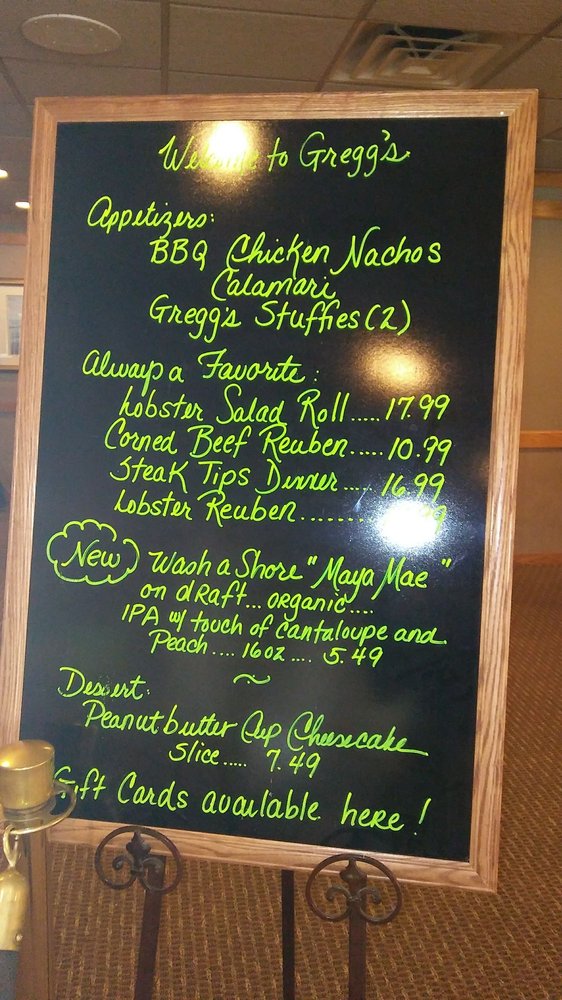 Welcome to Gregg's
Appetizers:
BBQ Chicken Nachos
Calamari
Gregg's Stuffies (2)
Always a Favorite:
Lobster Salad Roll..... 17.99
Corned Beef Reuben..... 10.99
Steak Tips Dinner..... 16.99
Lobster Reuben........
New
Wash a Shore "Maya Mae"
on draft... organic....
IPA w/ touch of cantaloupe and
Peach.... 16oz.... 5.49
~
Dessert:
Peanutbutter Cup Cheesecake
Slice..... 7.49
Gift Cards available here!